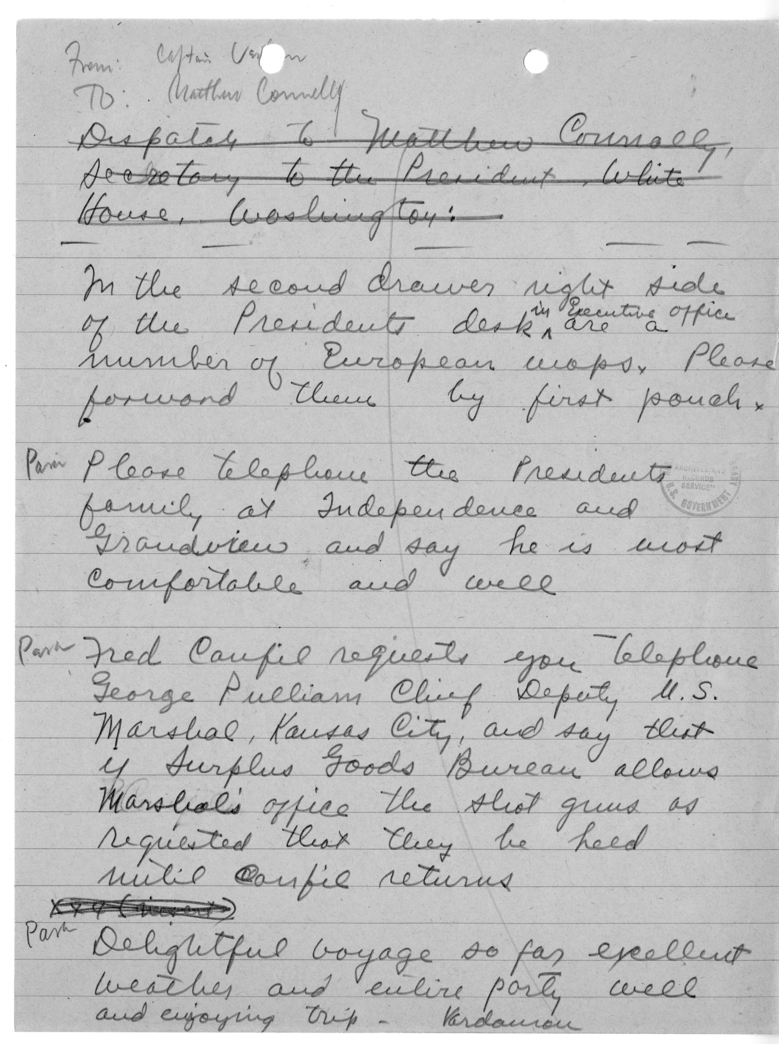 From: Captain
To: Matthew Connelly
Dispatch to Matthew Connally,
Secretary to the President, White
House, Washington:
In the second drawer right side
of the Presidents desk in Executive office are a
number of European maps. Please
forward them by first pouch.
Para Please telephone the Presidents
family at Independence and
Grandview and say he is most
comfortable and well
Para Fred Canfil requests you telephone
George Pulliam Chief Deputy U.S.
Marshal, Kansas City, and say that
if Surplus Goods Bureau allows
Marshal's office the shot guns as
requested that they be held
until Canfil returns
xxx (insert)
Para Delightful voyage so far excellent
weather and entire party well
and enjoying trip - Vardaman